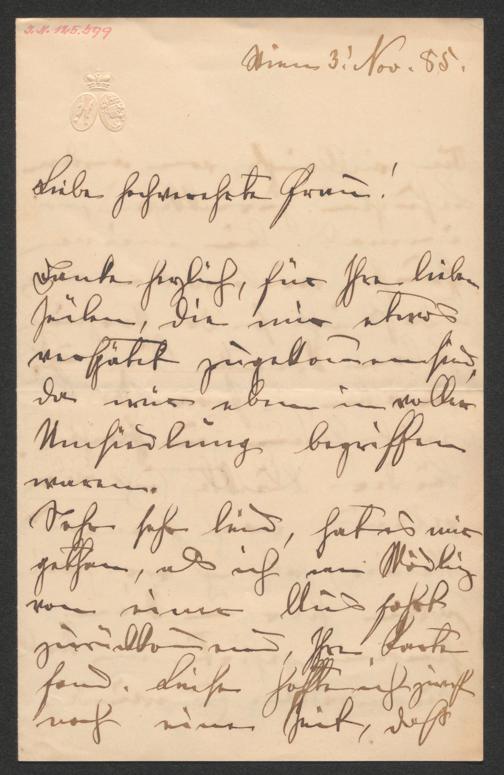 I.N. 125.579
Wien 3! Nov. 85.
Liebe hochverehrte Frau!
Danke herzlich, für Ihre lieben
Zeilen, die mir etwas
verspätet zugekommen sind,
da wir eben in voller
Umsiedlung begriffen
waren.
Sehr sehr leid, hat es mir
gethan, als ich in Mödling
von einer Ausfahrt
zurückkommend, Ihre Karte
fand. hoffte ich
noch eine Zeit, daß